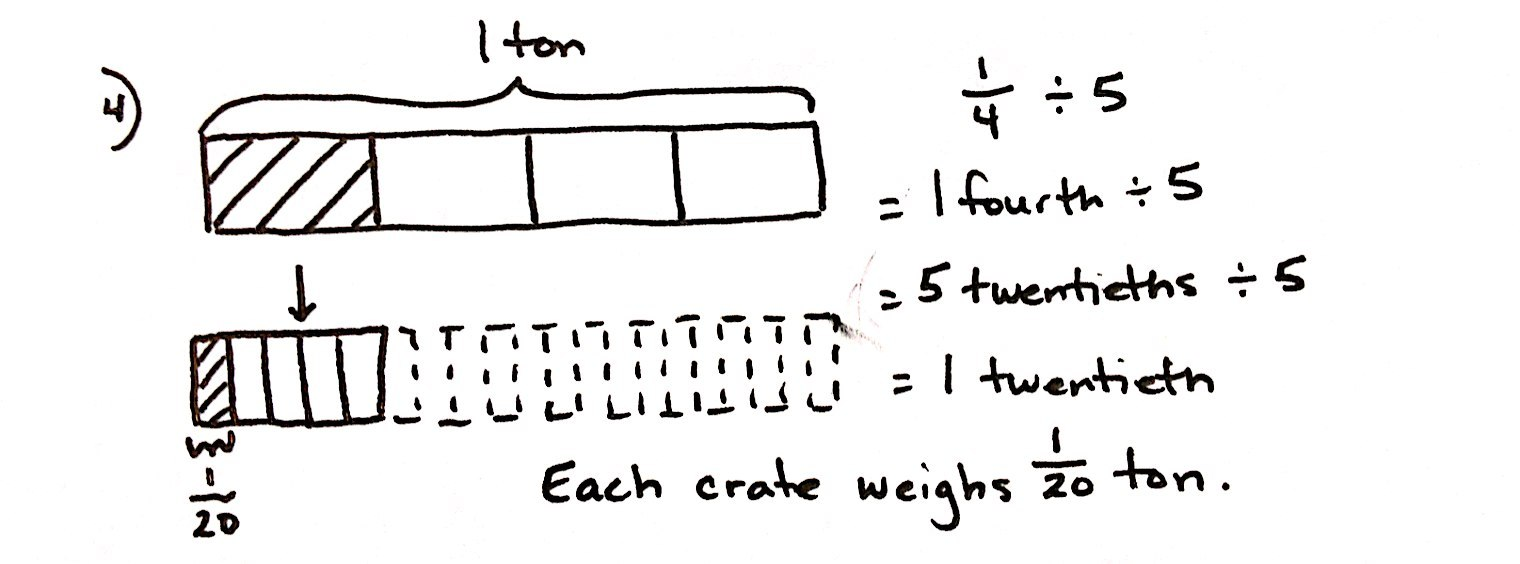 4)
1 ton
1/4 ÷ 5
= 1 fourth ÷ 5
= 5 twentieths ÷ 5
= 1 twentieth
1/20
Each crate weighs 1/20 ton.